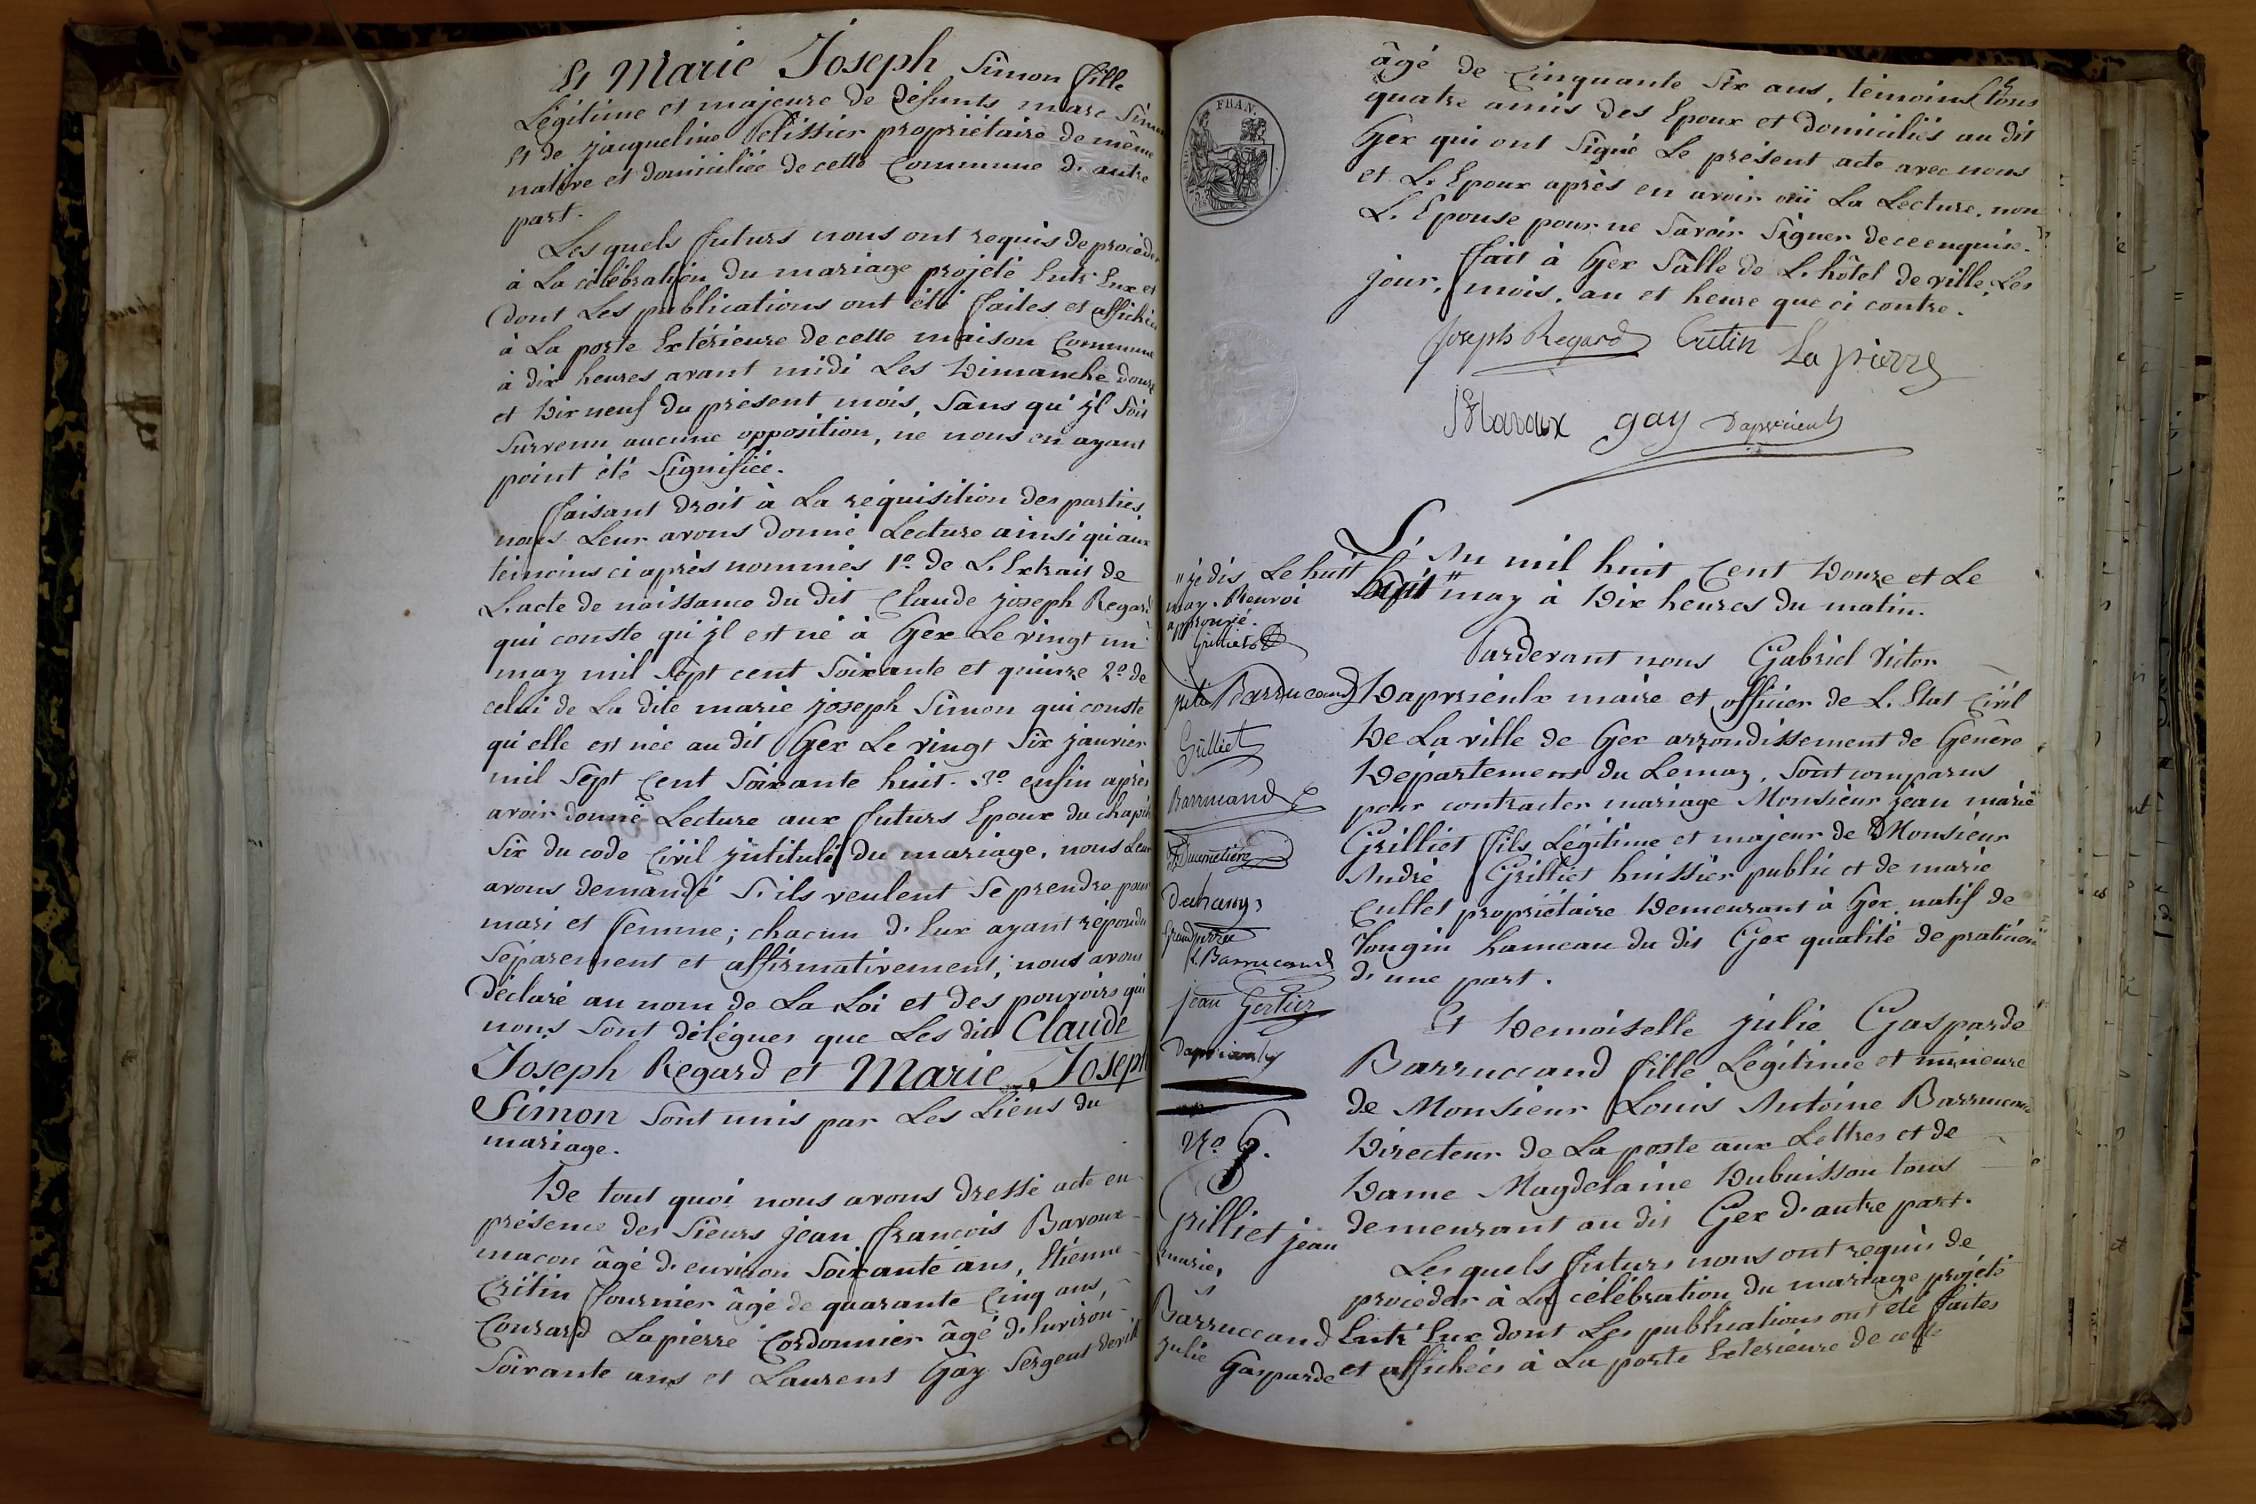 Et Marie Joseph Simon fille
Légitime et majeure de défunts marc Simon
Et de jacqueline Pélissier propriétaire de même
native et domiciliée de cette Commune d'autre
part.
Les quels futurs nous ont requis de procéder
à La célébration du mariage projeté Entr'Eux et
dont Les publications ont été faites et affichées
à La porte Extérieure de cette maison Commune
à dix heures avant midi Les Dimanche douze
et Dix neuf du présent mois, Sans qu'jl Soit
Survenu aucune opposition, ne nous en ayant
point été Signifiée.
faisant droit à La réquisition des parties,
nous Leur avons donné Lecture ainsi qu'aux
témoins ci après nommés 1º de L'Extrait de
L'acte de naissance du dit Claude joseph Regard
qui conste qu'jl est né à Gex Le vingt un
may mil Sept cent Soixante et quinze 2º de
celui de La dite marie joseph Simon qui conste
qu'elle est née au dit Gex Le vingt Six janvier
mil Sept Cent Soixante huit. 3º enfin après
avoir donné Lecture aux futurs Epoux du chapitre
Six du code Civil jntitulé du mariage, nous Leur
avons demandé S'ils veulent Se prendre pour
mari et femme; chacun d'Eux ayant répondu
Séparement et affirmativement; nous avons
déclaré au nom de La Loi et des pouvoirs qui
nous Sont délégués que Les dits Claude
Joseph Regard et Marie Joseph
Simon Sont unis par Les Liens du
mariage.
De tout quoi nous avons dressé acte en
présence des Sieurs jean françois Bavoux
maçon âgé d'environ Soixante ans, Etienne
Critin fournier âgé de quarante Cinq ans,
Conrard Lapierre Cordonnier âgé d'Environ
Soixante ans et Laurent Gay Sergent de ville
âgé de Cinquante Six ans, témoins tous
quatre amis des Epoux et domiciliés au dit
Gex qui ont Signé Le présent acte avec nous
et L'Epoux après en avoir ouï La Lecture, non
L'Epouse pour ne Savoir Signer de ce enquise.
fait à Gex Salle de L'hôtel de ville, Les
jour, mois, an et heure que ci contre.
Joseph Regard Critin La pierre
Bavoux gay Daprieulx
L'An mil huit Cent Douze et Le
huit" may à Dix heures du matin.
" je dis Le huit
may. Renvoi
approuvé.
Grilliet
Barrucand
Grilliet
Barrucand
Dumetiere
Duhamy
Grandperret
L. Barrucand
jean Gertier
Daprieulx
Pardevant nous Gabriel Victor
Daprieulx maire et officier de L'Etat Civil
De La ville de Gex arrondissement de Genève
Département du Leman, Sont comparus
pour contracter mariage Monsieur jean marie
Grilliet fils Légitime et majeur de Monsieur
André Grilliet huissier public et de marie
Cullet propriétaire Demeurant à Gex natif de
Tougin hameau du dit Gex qualité de praticien
d'une part.
Et Demoiselle julie Gasparde
Barruccand fille Légitime et mineure
de Monsieur Louis Antoine Barrucand
Directeur de La poste aux Lettres et de
Dame Magdelaine Dubuisson tous
demeurant au dit Gex d'autre part.
Les quels futurs nous ont requis de
procéder à La célébration du mariage projeté
Entr'Eux dont Les publications ont été faites
et affichées à La porte Extérieure de cette
Grilliet jean
marie,
Barruccand
julie
Gasparde